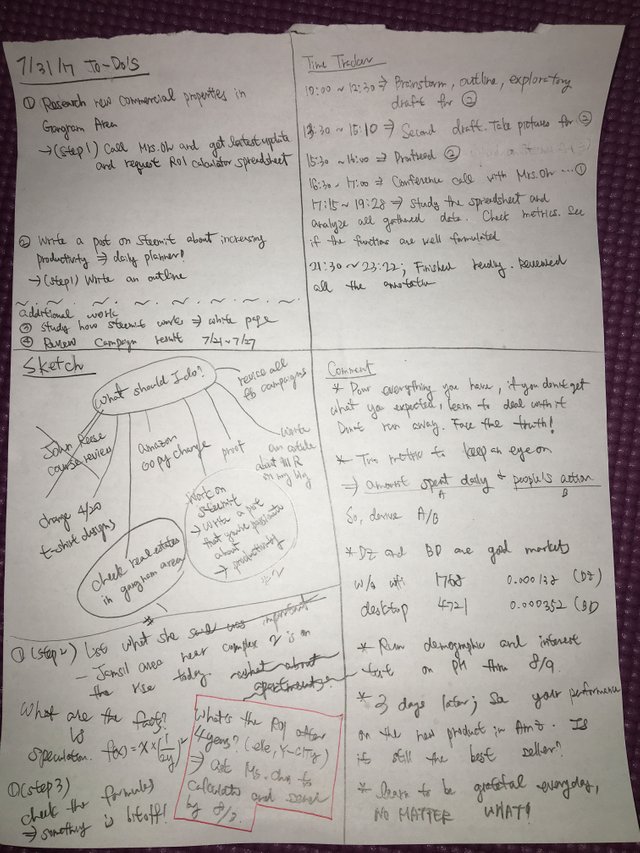 7/31/17 To-Do's
① Research new commercial properties in
Gangnam Area
→ (step1) Call Mrs. Oh and get latest update
and request ROI calculator spreadsheet
② Write a post on steemit about increasing
productivity ⇒ daily planner!
→ (step1) Write an outline
additional work
③ Study how steemit works ⇒ white page
④ Review campaign result 7/21~7/27
Time Tracker
10:00 ~ 12:30 ⇒ Brainstorm, outline, exploratory
draft for ②
13:30 ~ 15:10 ⇒ Second draft. Take pictures for ②
15:30 ~ 16:00 ⇒ Proofread ②
16:30 ~ 17:00 ⇒ Conference call with Mrs. Oh ... ①
17:15 ~ 19:28 ⇒ study the spreadsheet and
analyze all gathered data. Check metrics. See
if the functions are well formulated
21:30 ~ 23:22; Finished reading. Reviewed
all the
Sketch
What should I do?
revise all
fb campaigns
John Reese
course review
amazon
copy change
proof
write
an article
about MR
in my blog
change 4/20
t-shirt designs
check real estates
in gangnam area
Work on
steemit
→ Write a post
about
→ productivity
#2
① (step2) list what she said was important
- Jamsil area near complex 2 is on
the rise today. what about
apartments?
What are the facts?
Is
speculation. f(x) = x × (1/2y)²
① (step3)
check the formulas
⇒ something is bit off!
What's the ROI after
4 years? (ele, Y-City)
⇒ ask Ms. to
calculate and send
by 8/2.
Comment
* Pour everything you have, if you don't get
what you expected, learn to deal with it
Don't run away. Face the truth!
* Two metrics to keep an eye on
⇒ amount spent daily & people's action
A B
So, derive A/B
* DZ and BD are good markets
w/o wifi 1768 0.000138 (DZ)
desktop 4721 0.000352 (BD
* Run demographic and interest
test on PH thru 8/9.
* 3 days later; See your performance
on the new product in Amz. Is
it still the best seller?
* learn to be grateful everyday,
NO MATTER WHAT!